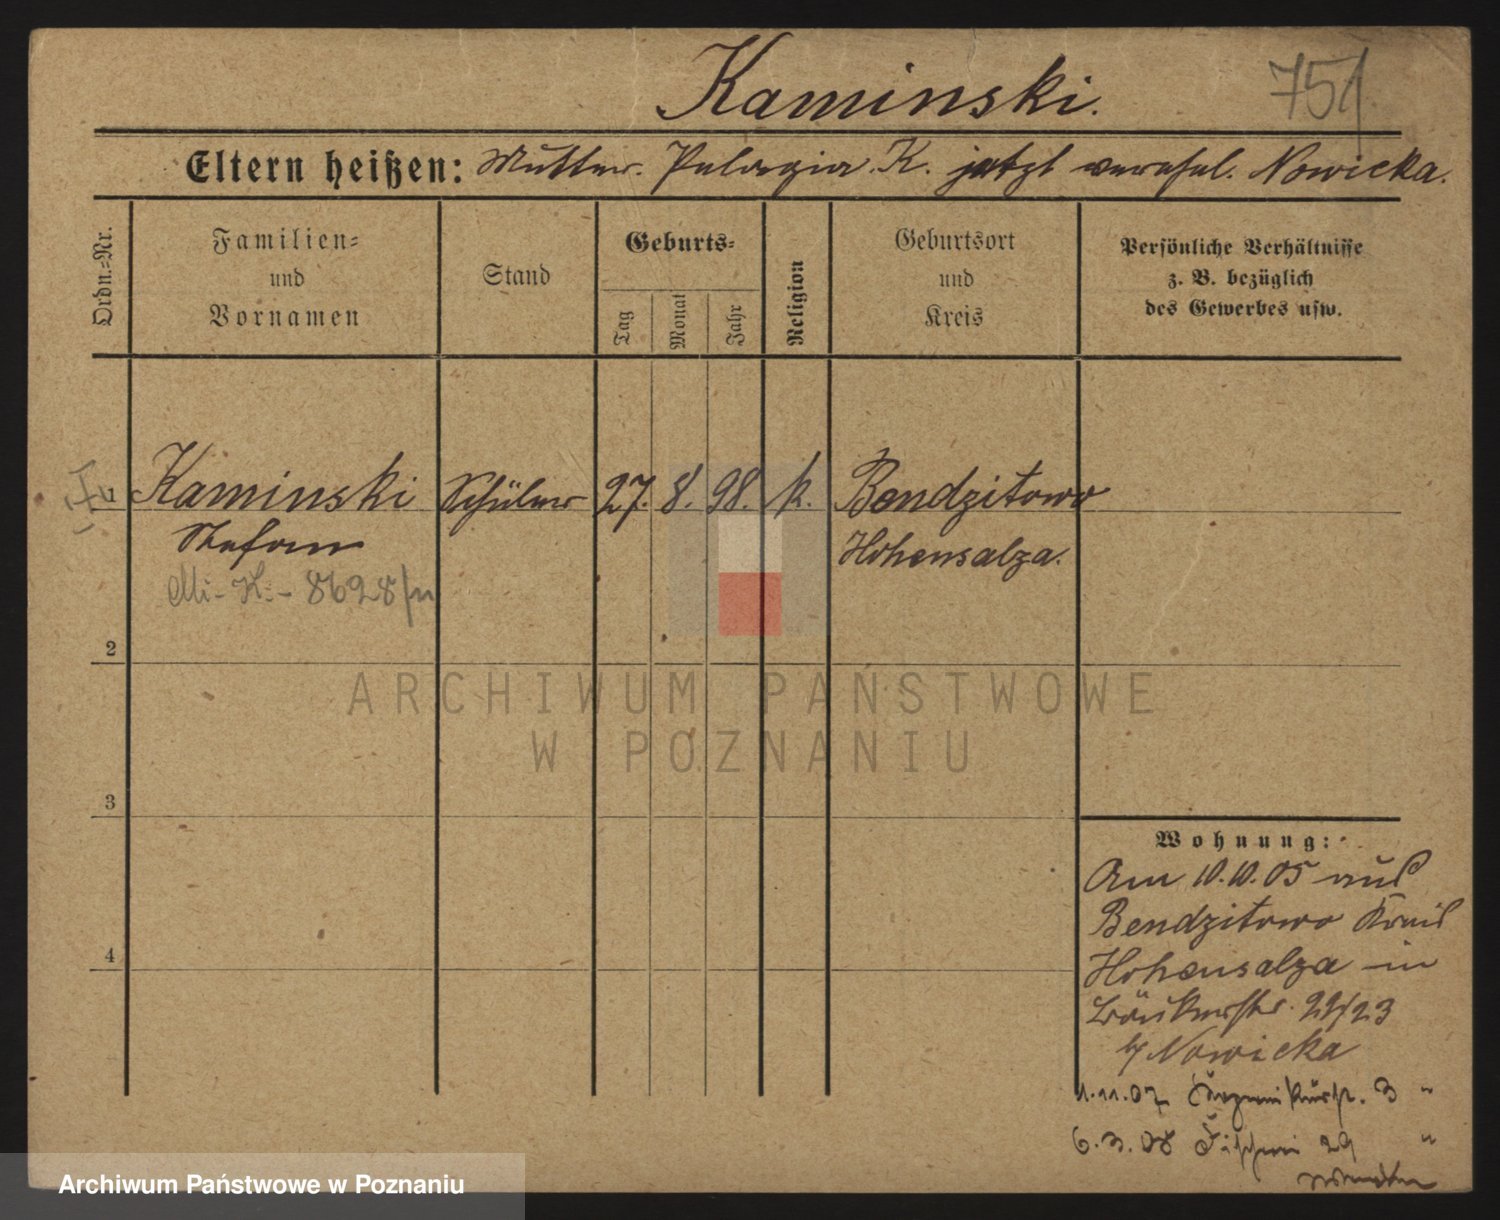 Kaminski.
751
Eltern heißen: Mutter. Pelagia K. jetzt verehel. Nowicka.
Ordn.-Nr.
Familien-
und
Vornamen
Stand
Geburts-
Tag
Monat
Jahr
Religion
Geburtsort
und
Kreis
Persönliche Verhältnisse
z. B. bezüglich
des Gewerbes usw.
1
Kaminski
Schüler
27.
8.
98.
k.
Bendzitowo
Stefan
Hohensalza.
8628/
2
3
4
ARCHIWUM PAŃSTWOWE
W POZNANIU
Wohnung:
Am 10.10.05 aus
Bendzitowo Kreis
Hohensalza in
22/23
b/ Nowicka
1.11.07 3 "
6.3.08 Fischerei 29 "
wenden
Archiwum Państwowe w Poznaniu